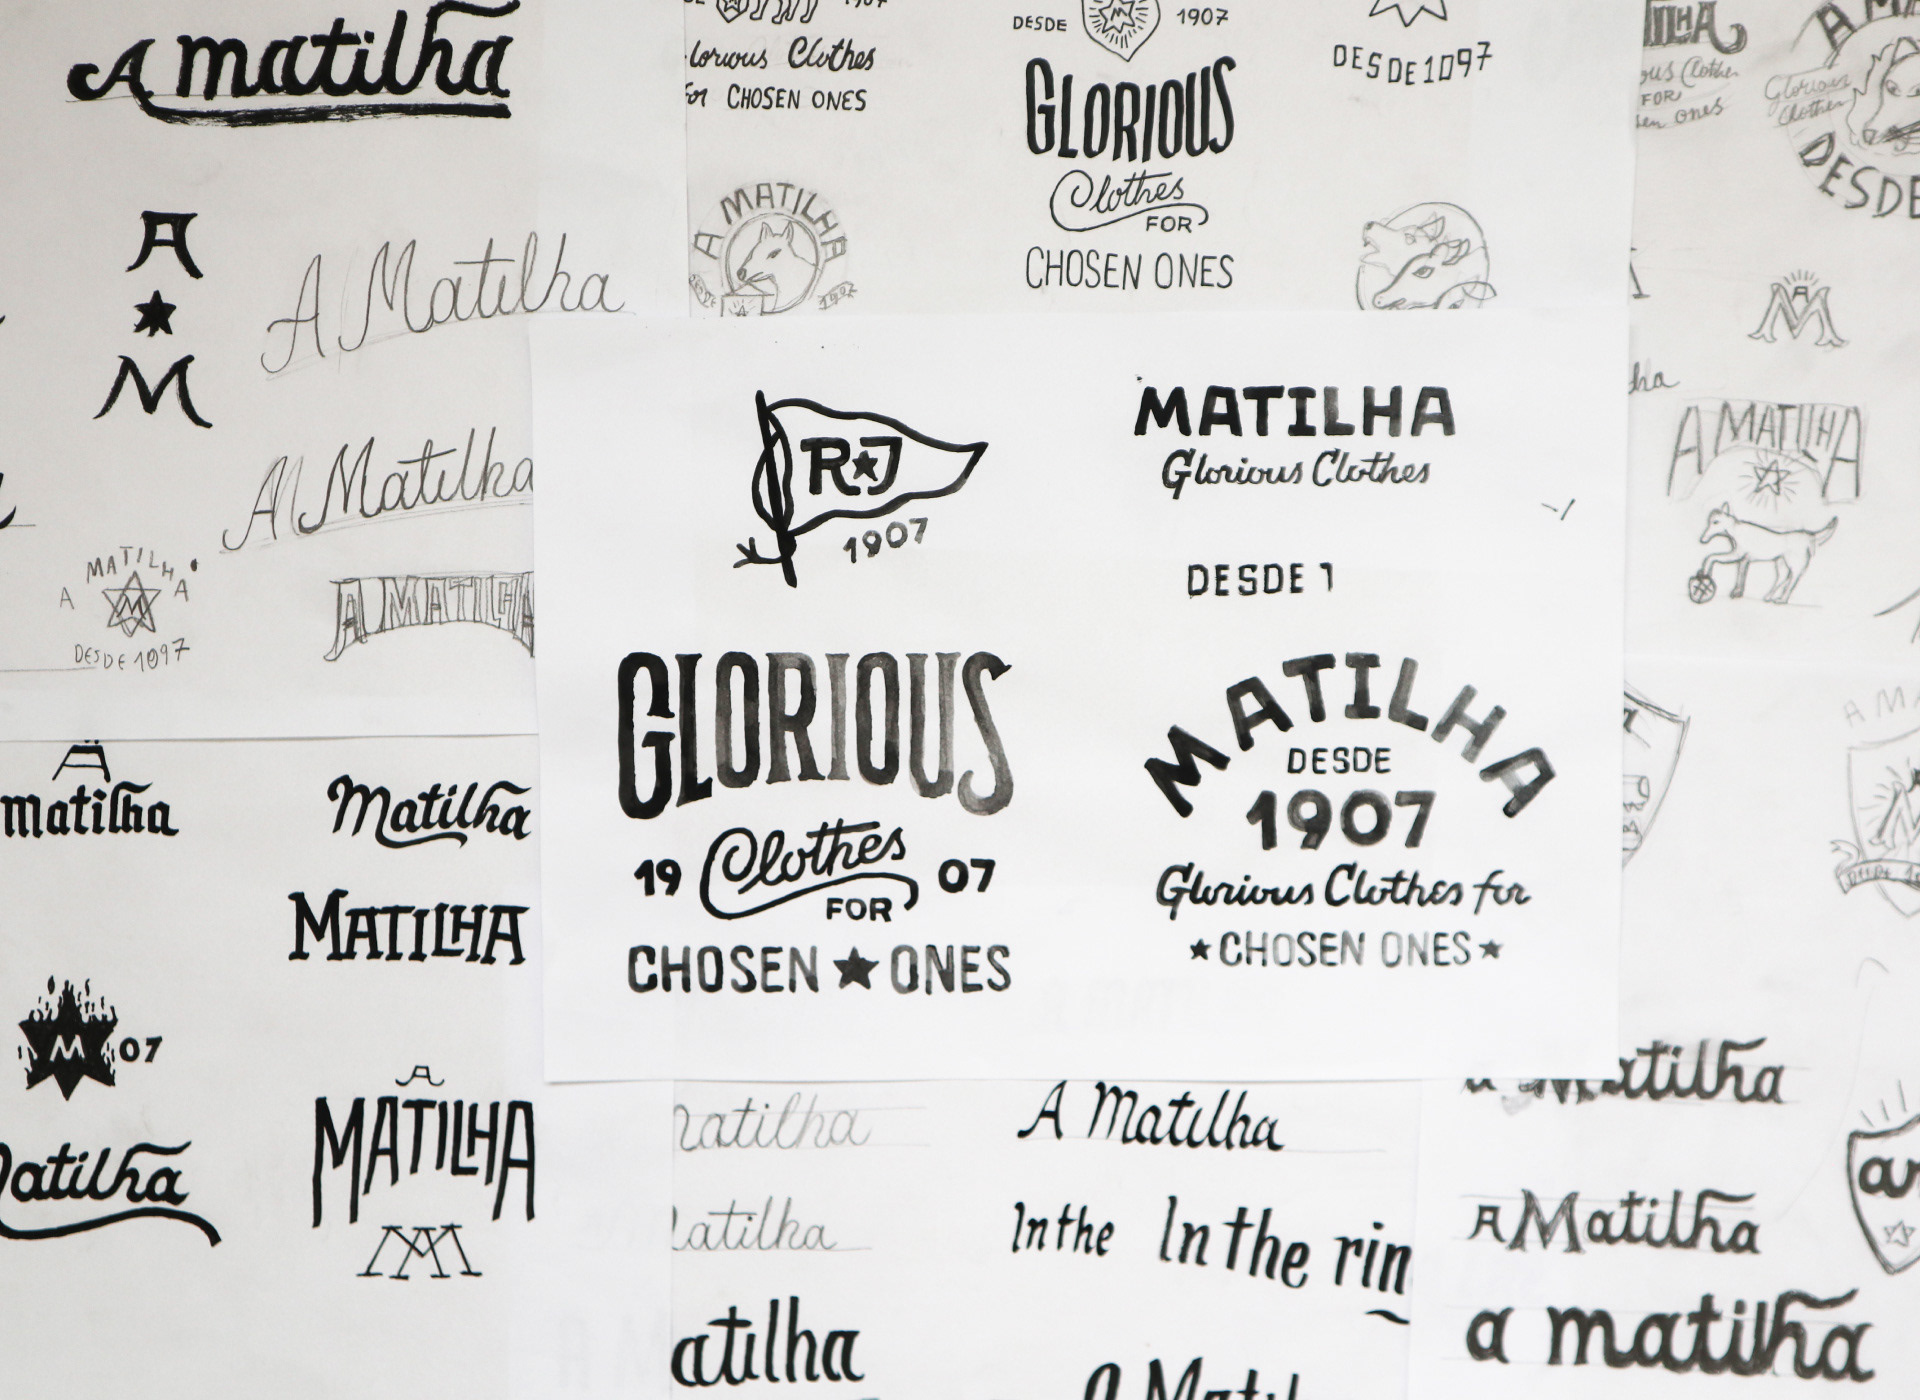 A matilha
A
M
A Matilha
A Matilha
A MATILHA
DESDE 1097
A MATILHA
Clothes
CHOSEN ONES
A MATILHA
DESDE 1907
GLORIOUS
Clothes
FOR
CHOSEN ONES
DESDE 1097
Glorious
Clothes
DESDE
FOR
ones
M
A MATILHA
RJ
1907
MATILHA
Glorious Clothes
DESDE 1
GLORIOUS
19 Clothes 07
FOR
CHOSEN ONES
MATILHA
DESDE
1907
Glorious Clothes for
CHOSEN ONES
A
matilha
Matilha
MATILHA
M 07
A
MATILHA
atilha
A Matilha
In the In the rin
atilha
a Matilha
A Matilha
a matilha